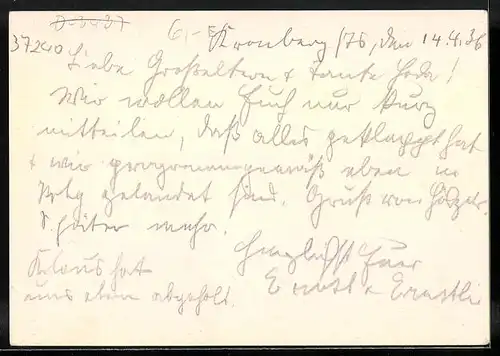 37240 6,-
Kronberg /TS, den 14.4.36
Liebe Großeltern & Tante Heda!
Wir wollen Euch nur kurz
mitteilen, daß alles geklappt hat
& wir programmgemäß eben in
gelandet sind. Gruß von
Später mehr.
Herzlichst Euer
Klaus hat
uns eben abgeholt.